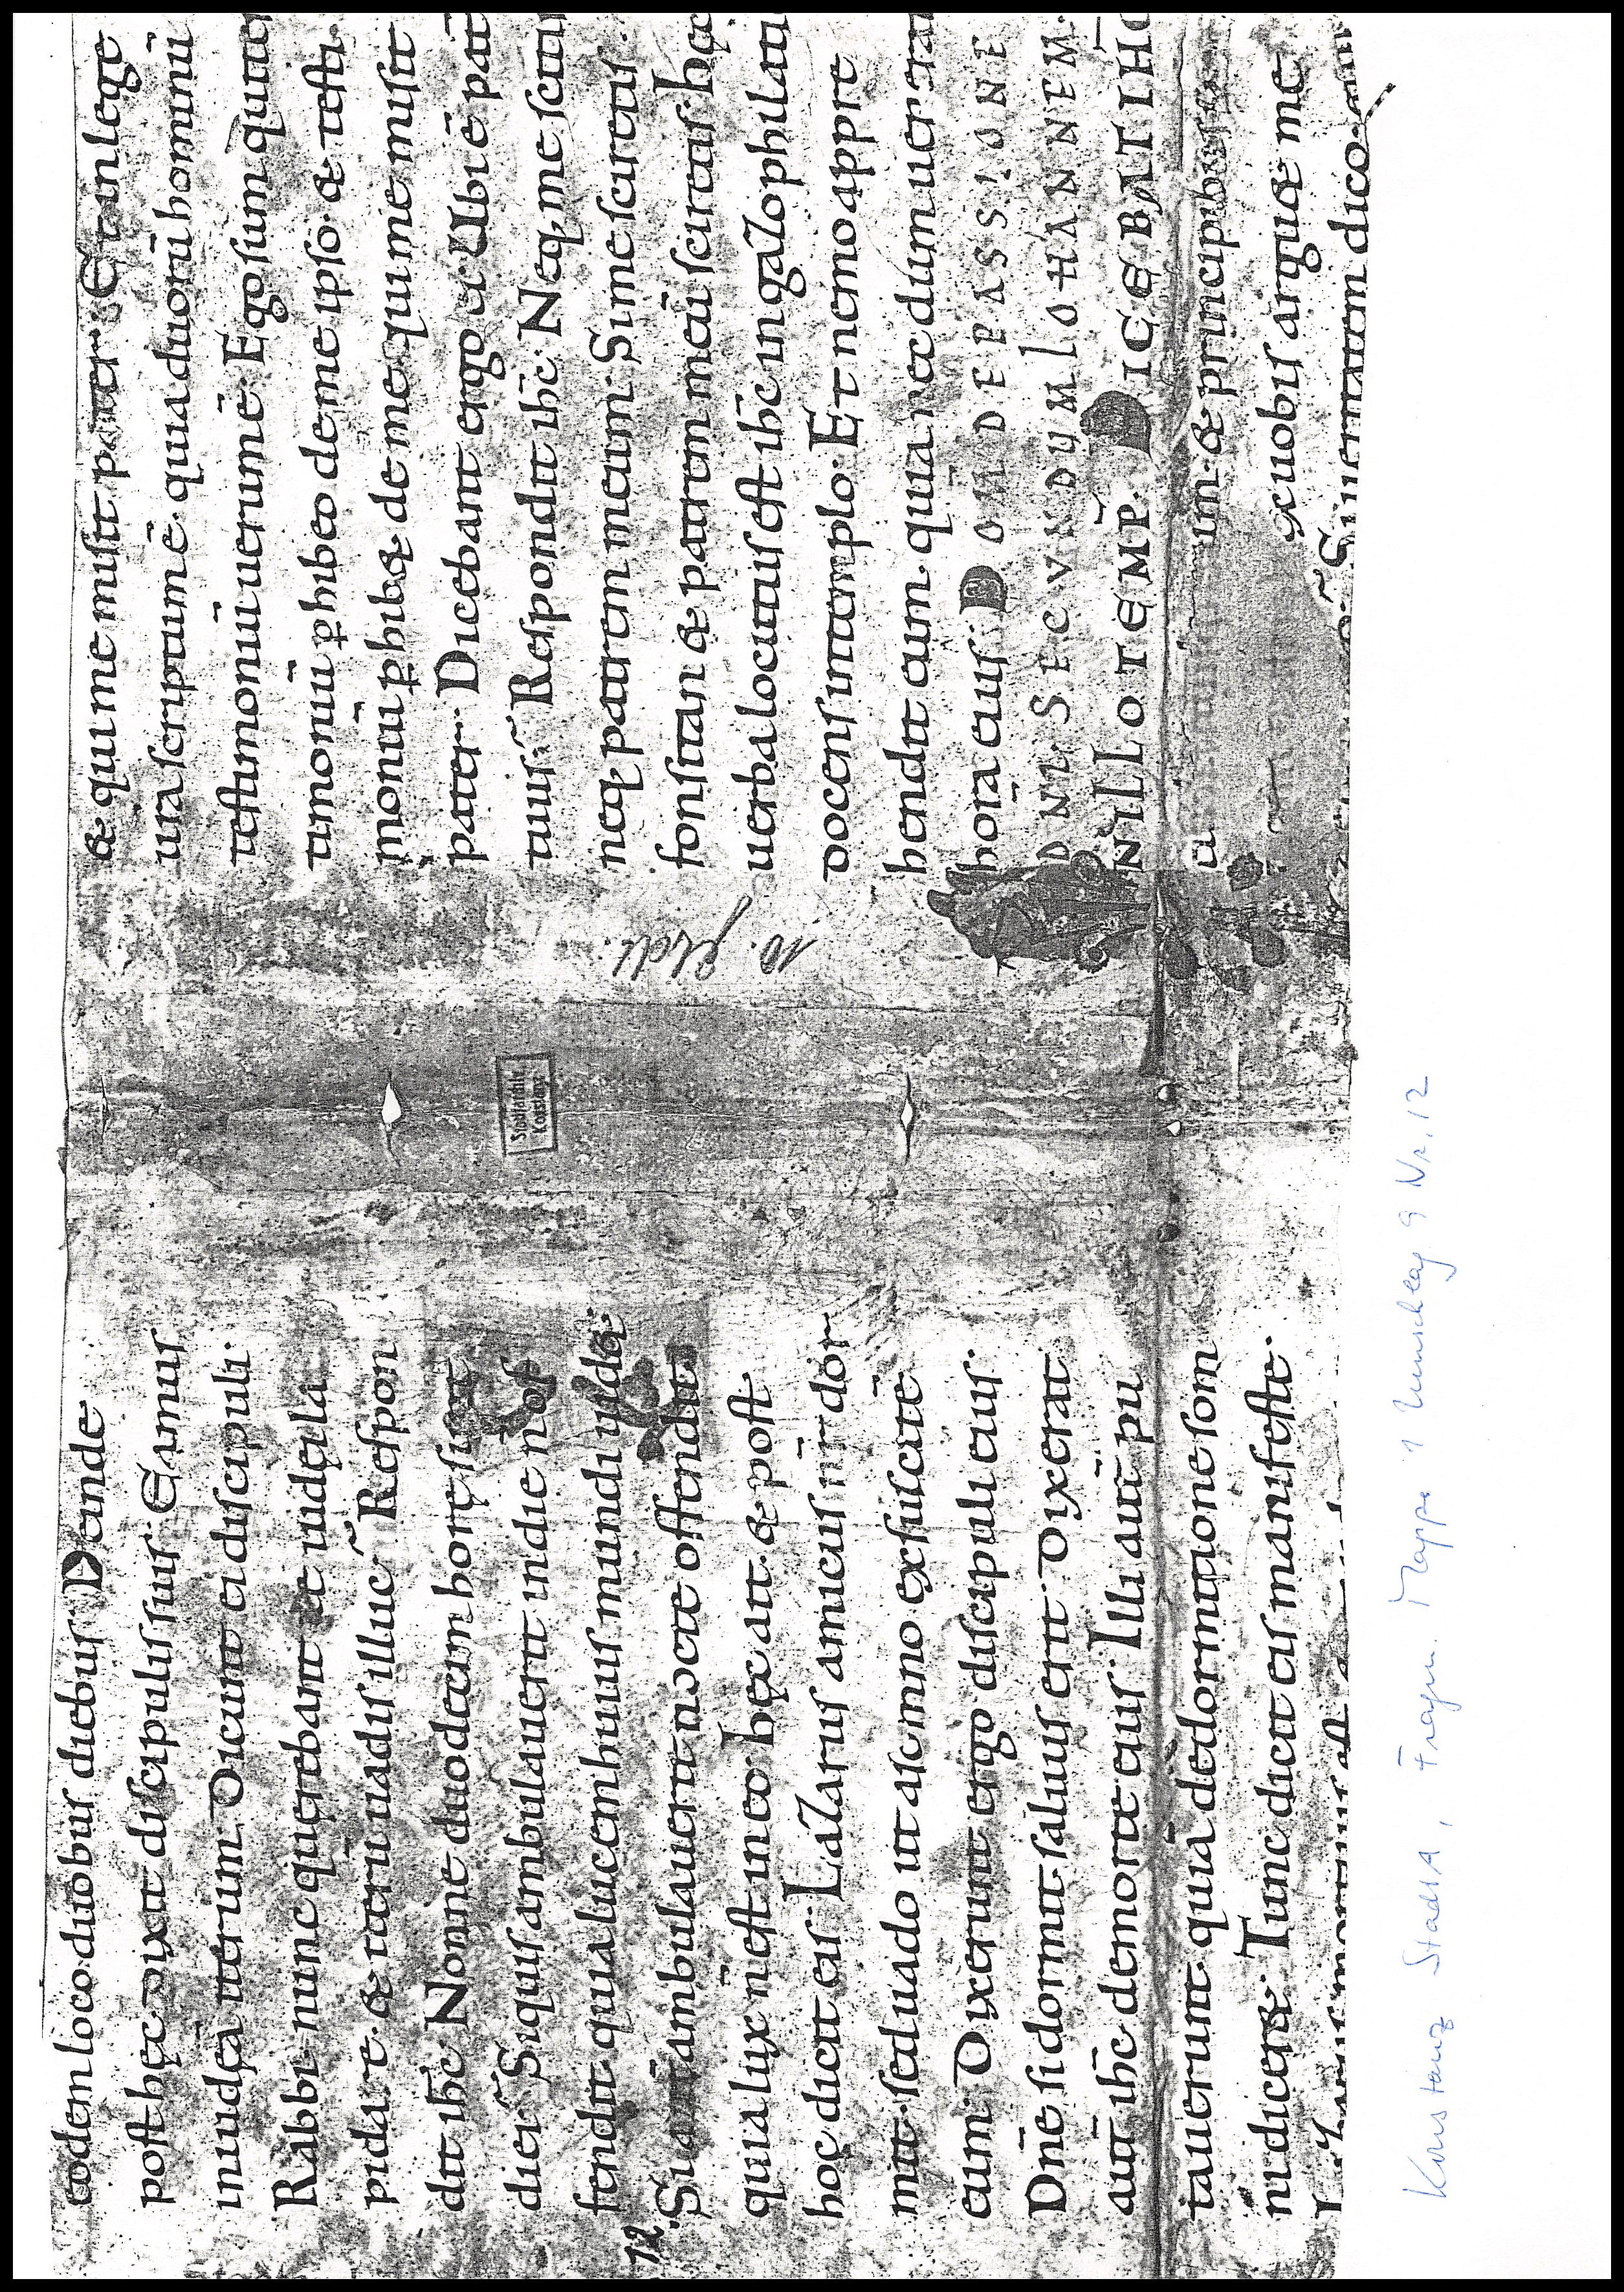 eodem loco duobus diebus. Deinde
post hęc dixit discipulis suis. Eamus
in iudęā iterum. Dicunt ei discipuli.
Rabbi nunc querebant te iudęi la
pidare. & iterū uadis illuc. Respon
dit ihc. Nonne duodecim horę sunt
diei. Siquis ambulauerit in die n̄ of
fendit. quia lucem huius mundi uid&.
Si aut̄ ambulauerit nocte offendit
quia lux n̄ est in eo. hęc ait. & post
hoc dicit eis. Lazarus amicus nr̄ dor
mit. sed uado ut a somno exsuscitē
eum. Dixerunt ergo discipuli eius.
Dn̄e si dormit. saluus erit. Dixerat
aut̄ ihc de morte eius. Illi aut̄ pu
tauerunt. quia de dormitione som
ni diceret. Tunc dicit eis manifeste.
Lazarus mortuus est
12.
& qui me misit pater. Et in lege
ura scriptum ē. quia duorū hominū
testimoniū uerum ē. Ego sum qui te
timoniū phibeo de me ipso. & testi
moniū phib& de me qui me misit
pater. Dicebant ergo ei. Ubi ē pat̄
tuus. Respondit ihc. Neq; me scitis
neq; patrem meum. Si me sciretis.
forsitan & patrem meū sciretis. hęc
uerba locutus est ihc in gazophilati
docens in templo. Et nemo appre
hendit eum. quia necdum uenera
hora eius. DOM DE PASSIONE
DNI SECUNDUM IOHANNEM.
IN ILLO TEMP. DICEBAT IHC
im. & principibus
ex uobis arguet me
Si ueritatem dico
10.
Stadtarchiv
Konstanz
Konstanz StadtA, Fragm. Mappe 1 Umschlag 9 Nr. 12